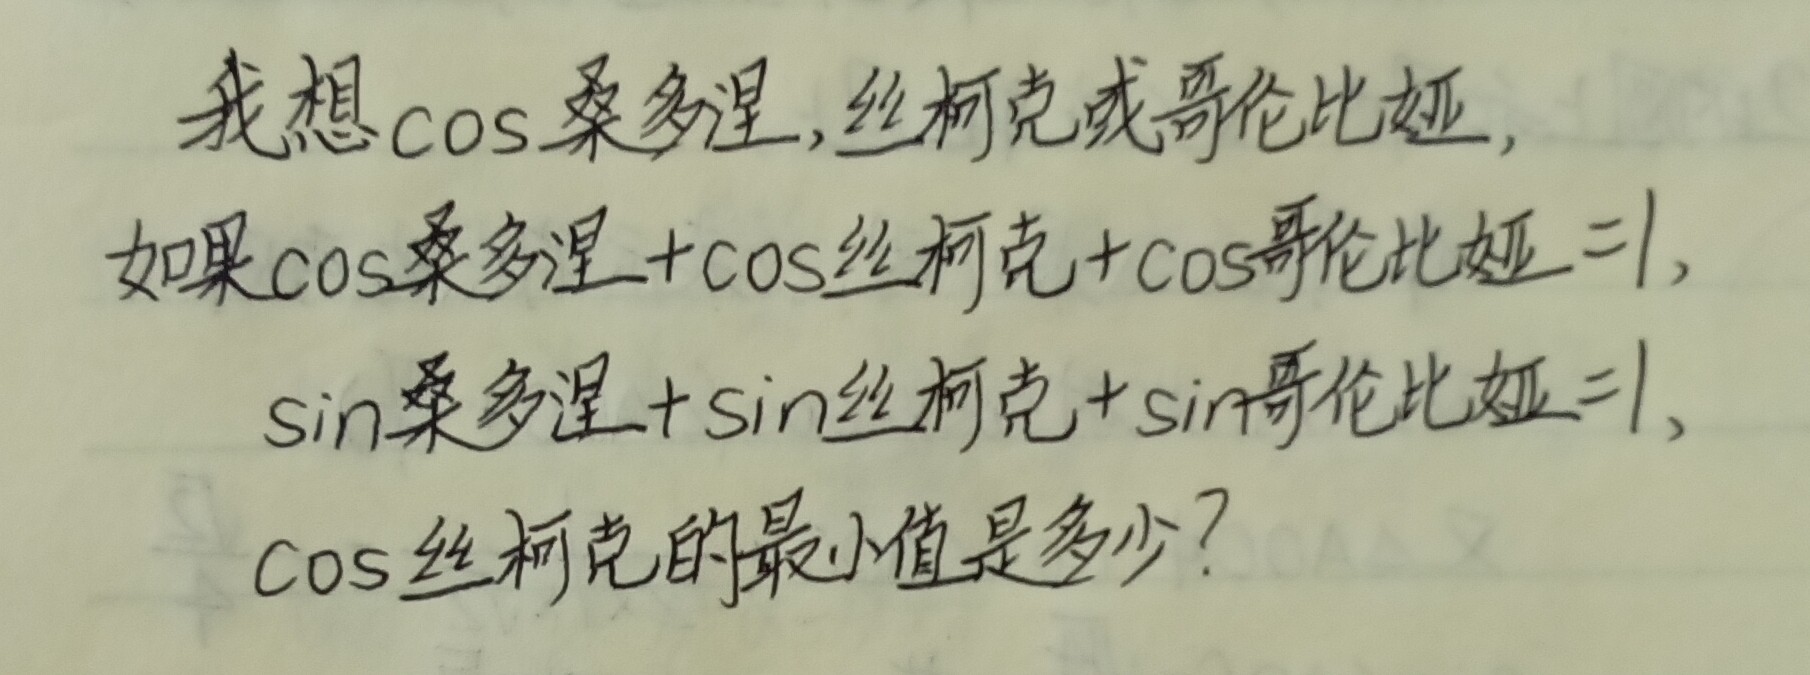 我想cos桑多涅,丝柯克或哥伦比娅,
如果cos桑多涅+cos丝柯克+cos哥伦比娅=1,
sin桑多涅+sin丝柯克+sin哥伦比娅=1,
cos丝柯克的最小值是多少?